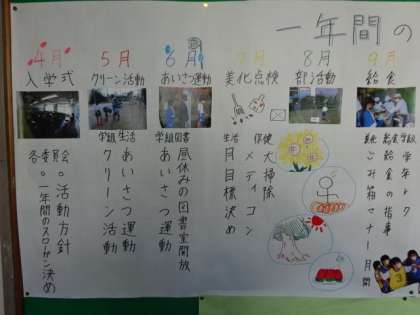 一年間の
4月
入学式
各委員会
○活動方針
○一年間のスローガン決め
5月
クリーン活動
学級 生活
あいさつ運動
クリーン活動
6月
あいさつ運動
学級 図書
昼休みの図書室開放
あいさつ運動
7月
美化点検
生活 保健
大掃除
メディコン
月目標決め
8月
部活動
9月
給食
学級
学年トーク
給食
給食の指導
ごみ箱マナー月間